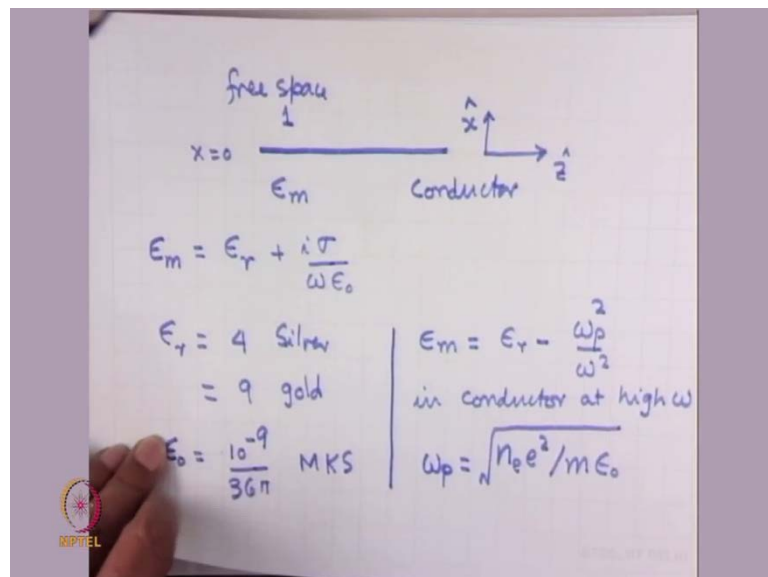 free space
1
x̂
x=0
ẑ
Em Conductor
Em = Er + iσ / ωε₀
Er = 4 Silver
= 9 gold
ε₀ = 10⁻⁹ / 36π MKS
Em = Er - ωp² / ω²
in conductor at high ω
ωp = √(nₑe²/mε₀)
NPTEL